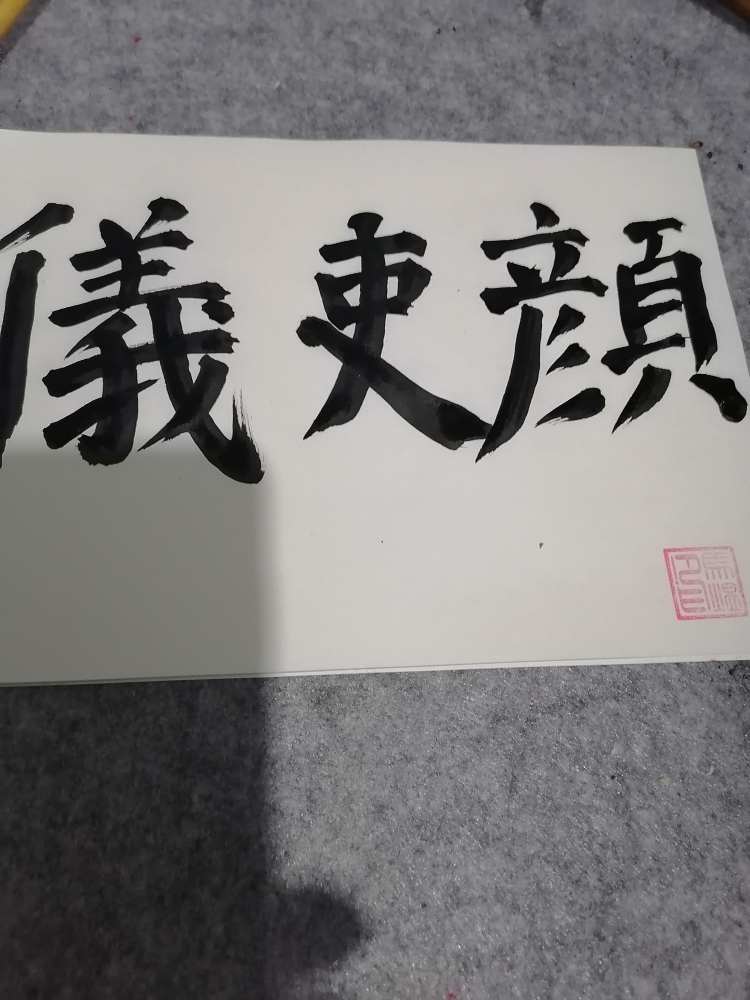 儀吏顔